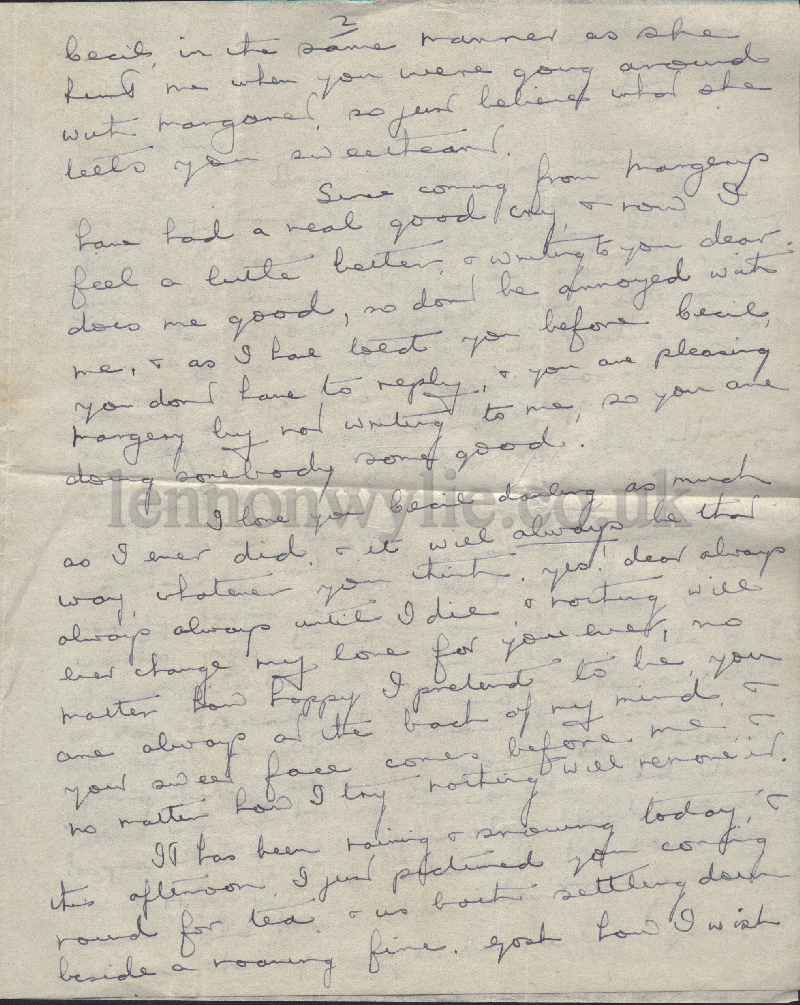 2
Cecil, in the same manner as she
hurt me when you were going around
with Margaret, so just believe what she
tells you sweetheart.
Since coming from Margerys
have had a real good cry, & now I
feel a little better, & writing to you dear
does me good, so dont be annoyed with
me, & as I have told you before Cecil,
you dont have to reply, & you are pleasing
Margery by not writing to me, so you are
doing somebody some good.
lennonwylie.co.uk
I love you Cecil darling as much
as I ever did, & it will always be that
way, whatever you think. yes! dear always
always always until I die, & nothing will
ever change my love for you ever, no
matter how happy I pretend to be, you
are always at the back of my mind, &
your sweet face comes before me, &
no matter how I try nothing will remove it.
It has been raining & snowing today, &
this afternoon I just pictured you coming
round for tea, & us both settling down
beside a roaring fire. Gosh how I wish